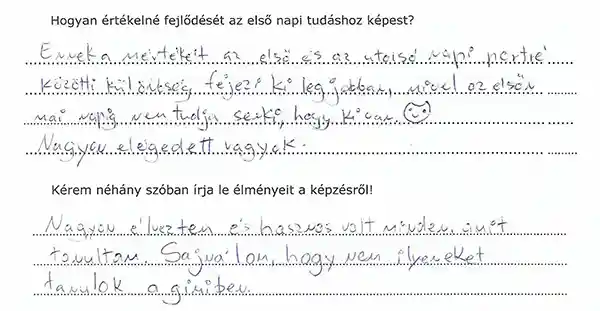 Hogyan értékelné fejlődését az első napi tudáshoz képest?
Ennek a mértékét az első és az utolsó napi portré
közötti különbség fejezi ki legjobban, mivel az elsőn
mai napig nem tudja senki, hogy ki van. ☺
Nagyon elégedett vagyok.
Kérem néhány szóban írja le élményeit a képzésről!
Nagyon élveztem és hasznos volt minden, amit
tanultam. Sajnálom, hogy nem ilyeneket
tanulok a gimiben.